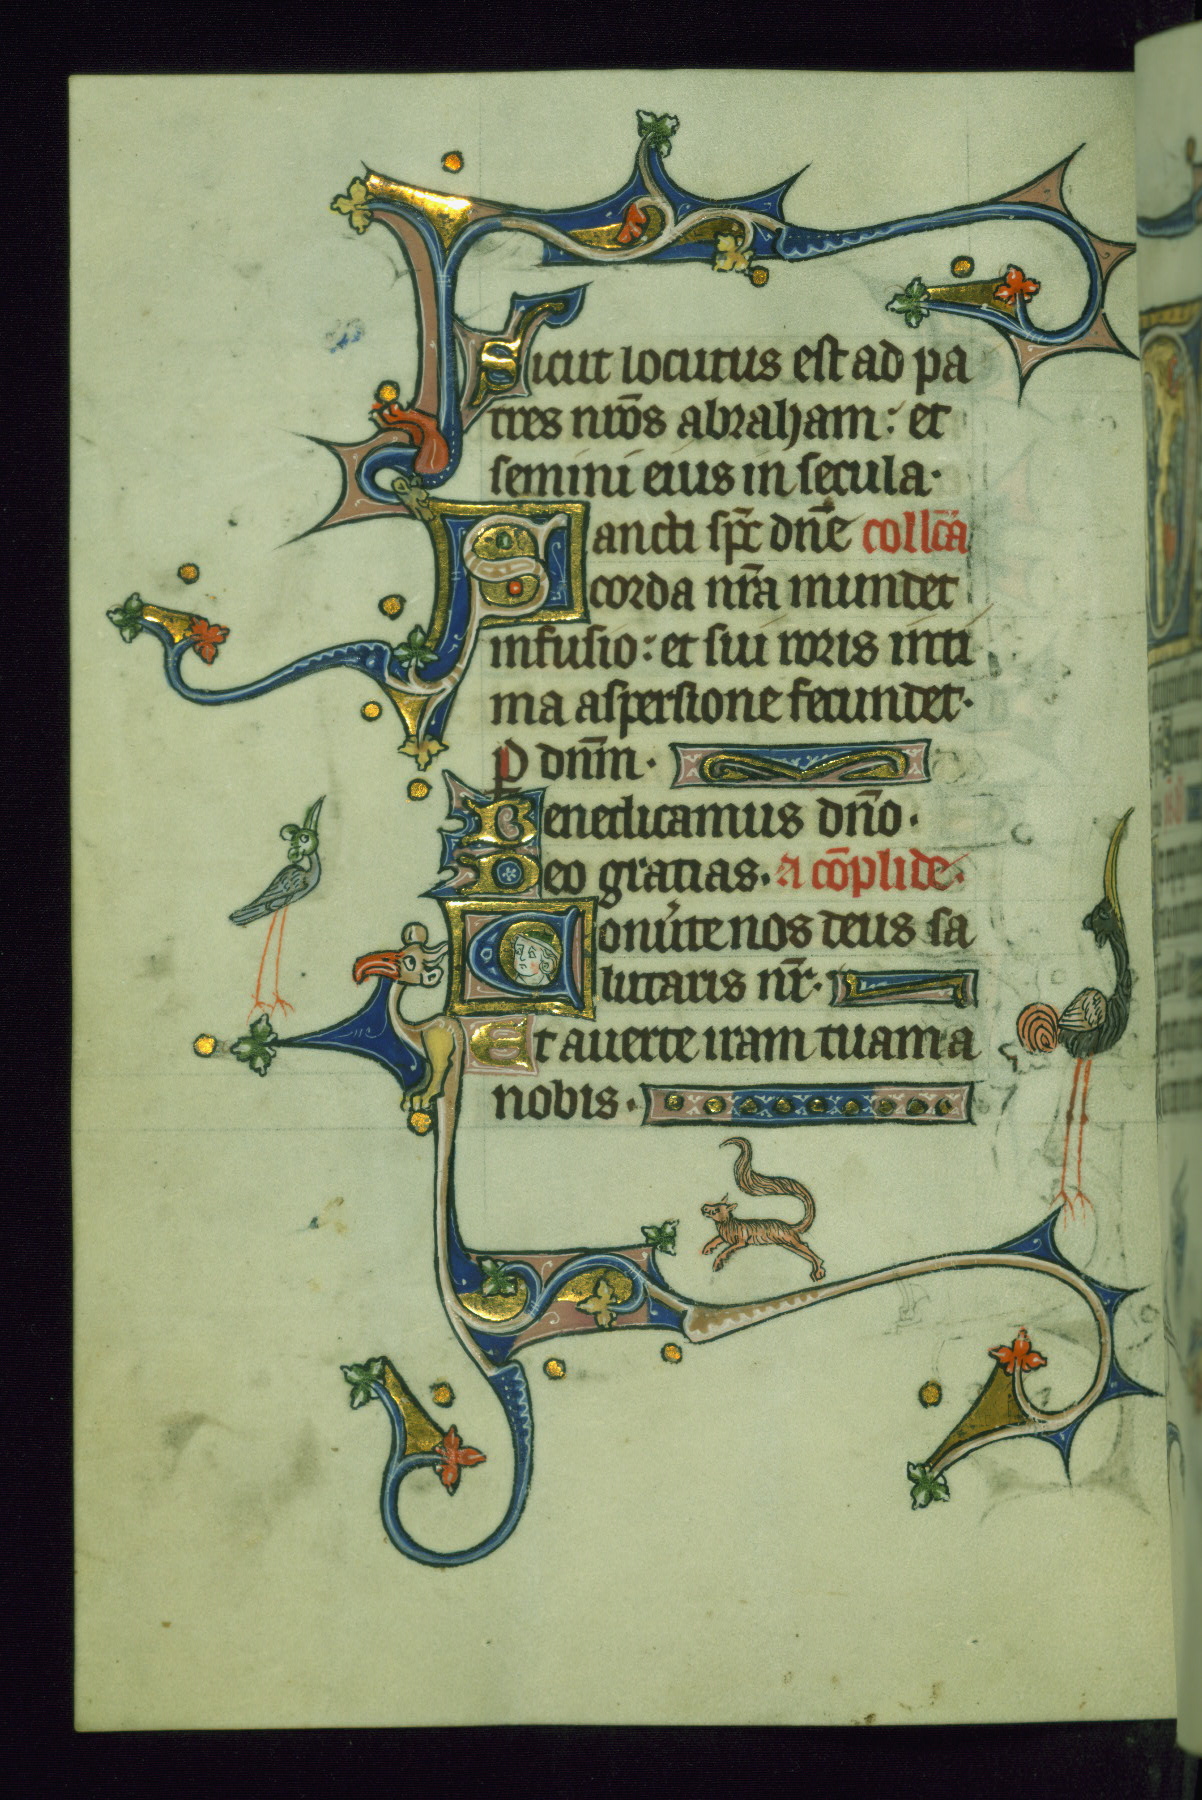 Sicut locutus est ad pa
tres nr̄os abraham: et
semini eius in secula.
Sancti sp̄c dn̄e coll̄cā
corda nr̄a mundet
infusio: et sui roris inti
ma aspersione fecundet.
P dn̄m.
Benedicamus dn̄o.
Deo gratias. A cōplide.
Conu̾te nos deus sa
lutaris nr̄.
Et auerte iram tuam a
nobis.